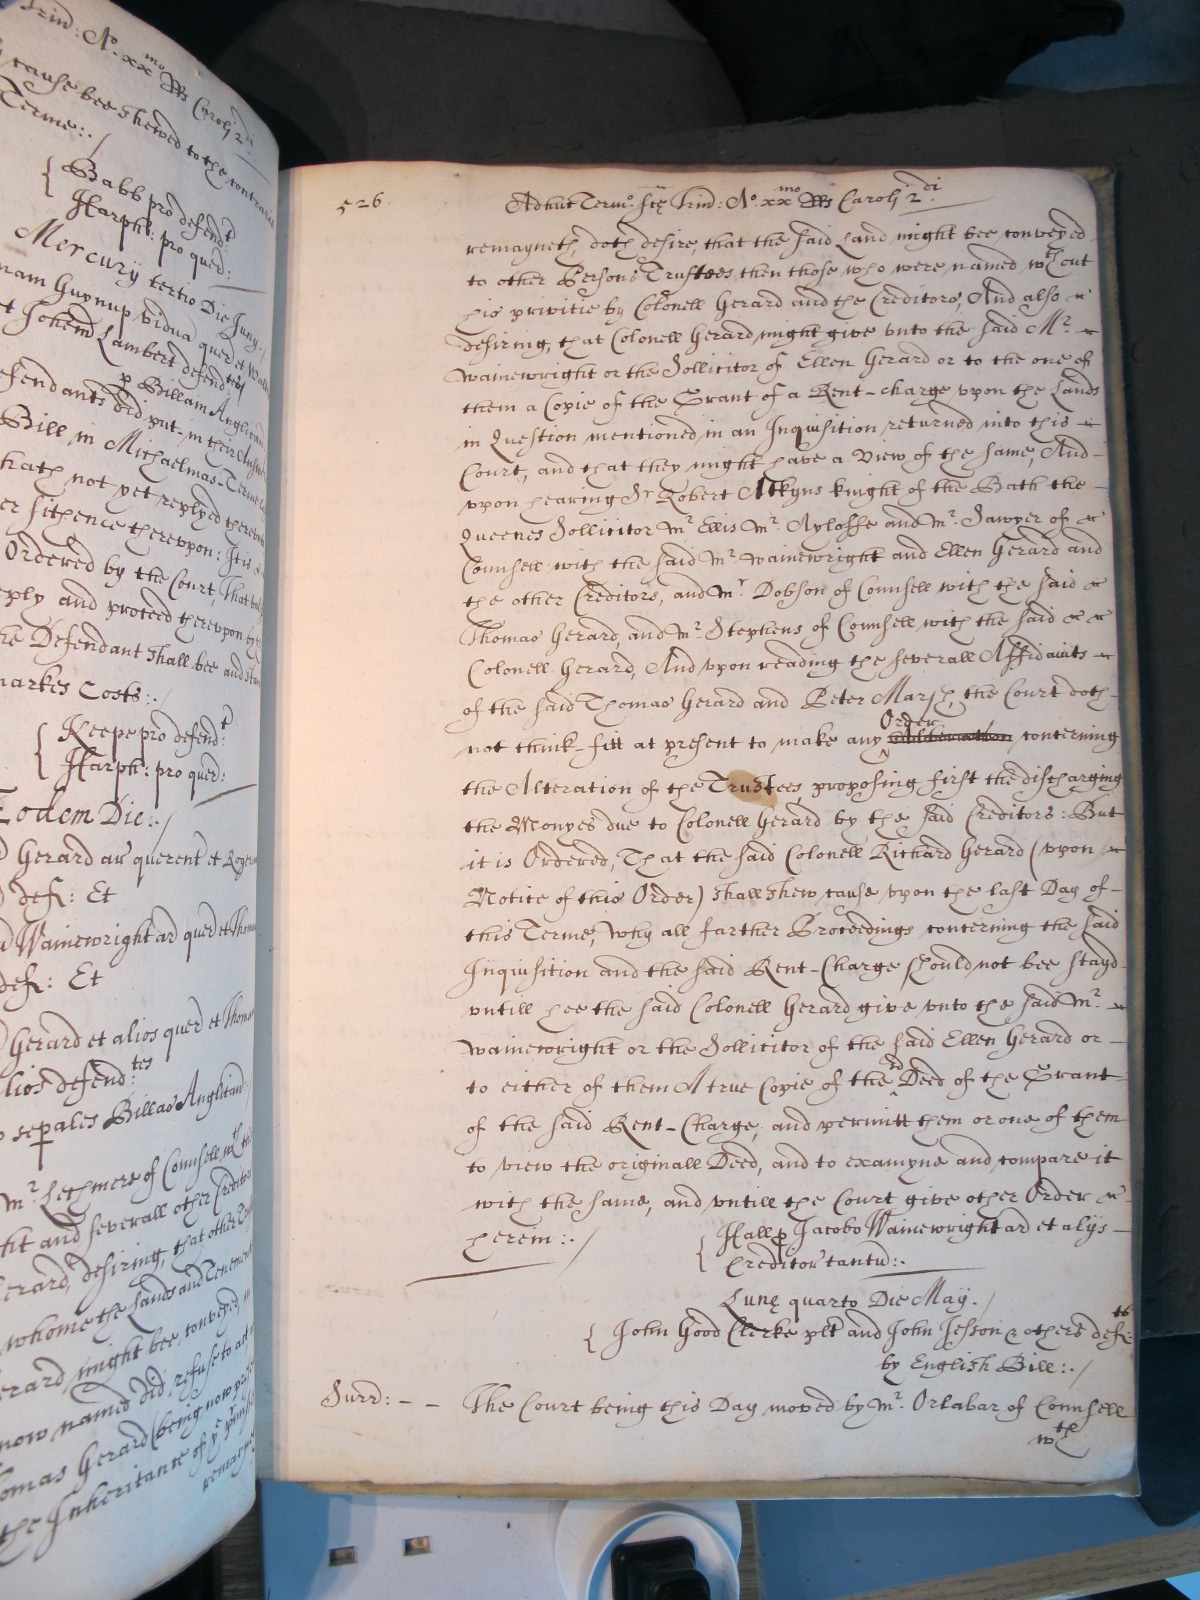 Trin: Ao. xxmo Rs Carolj 2di
cause bee shewed to the contrarie
Terme:./
Babb pro defendt
Harph: pro quer:
Mercurij tertio Die Junij:/
Guynup vidua quer et
Lambert defendtes
p Billam Anglican
efendants did put-in their Answ
Bill in Michaelmas-Terme
hath not yet replyed
er sithence therevpon: It is
Ordered by the Court, That
eply and proceed therevpon
he Defendant shall bee and
markes Costs:./
Keepe pro defend:t
Harph: pro quer:
Eodem Die:./
Gerard ar querent et Roger
def: Et
Wainewright ar quer et Thom
def: Et
Gerard et alios quer et Thom
alios defend:tes
p sepales Billas Anglican
Mr. Lechmere of Counsell wth
ht and severall other Creditors
erard, desiring, that other
whome the Lands and Tenemen
erard, might bee conveyed, in
now named did refuse to
omas Gerard (being now
the Inheritance of ye
remay
526 Adhuc Termo. Sce Trin: Ao. xxmo Rs Carolj 2di.
remayneth, doth desire, that the said Land might bee conveyed
to other Persons Trustees then those who were named wthout
his privitie by Colonell Gerard and the Creditors, And also
desiring, that Colonell Gerard might give vnto the said Mr.
Wainewright or the Sollicitor of Ellen Gerard or to the one of
them a Copie of the Grant of a Rent-charge vpon the Lands
in Question mentioned in an Inquisition returned into this
Court, and that they might have a View of the same, And
vpon hearing Sr Robert Atkyns knight of the Bath the
Queenes Sollicitor Mr. Ellis Mr. Ayloffe and Mr. Sawyer of
Counsell with the said Mr. Wainewright and Ellen Gerard and
the other Creditors, and Mr. Dobson of Counsell with the said
Thomas Gerard, and Mr. Stephens of Counsell with the said
Colonell Gerard, And vpon reading the severall Affidauits
of the said Thomas Gerard and Peter Marsh, the Court doth
not think-fitt at present to make any Order concerning
the Alteration of the Trustees, proposing first the discharging
the Monyes due to Colonell Gerard by the said Creditors: But
it is Ordered, That the said Colonell Richard Gerard (vpon
Notice of this Order) shall shew cause vpon the last Day of
this Terme, why all farther Proceedings concerning the said
Inquisition and the said Rent-Charge should not bee stayd
vntill hee the said Colonell Gerard give vnto the said Mr.
Wainewright or the Sollicitor of the said Ellen Gerard or
to either of them A true Copie of the sd Deed of the Grant
of the said Rent-Charge, and permitt them or one of them
to view the originall Deed, and to examyne and compare it
with the same, and vntill the Court give other Order
herein:./
Hall p Jacobo Wainewright ar et alijs
Creditor tantu:.
Lune quarto Die May./
John Good Clerke plt and John Jesson & others defts
by English Bill:./
Surr: - - The Court being this Day moved by Mr. Orlabar of Counsell
wth